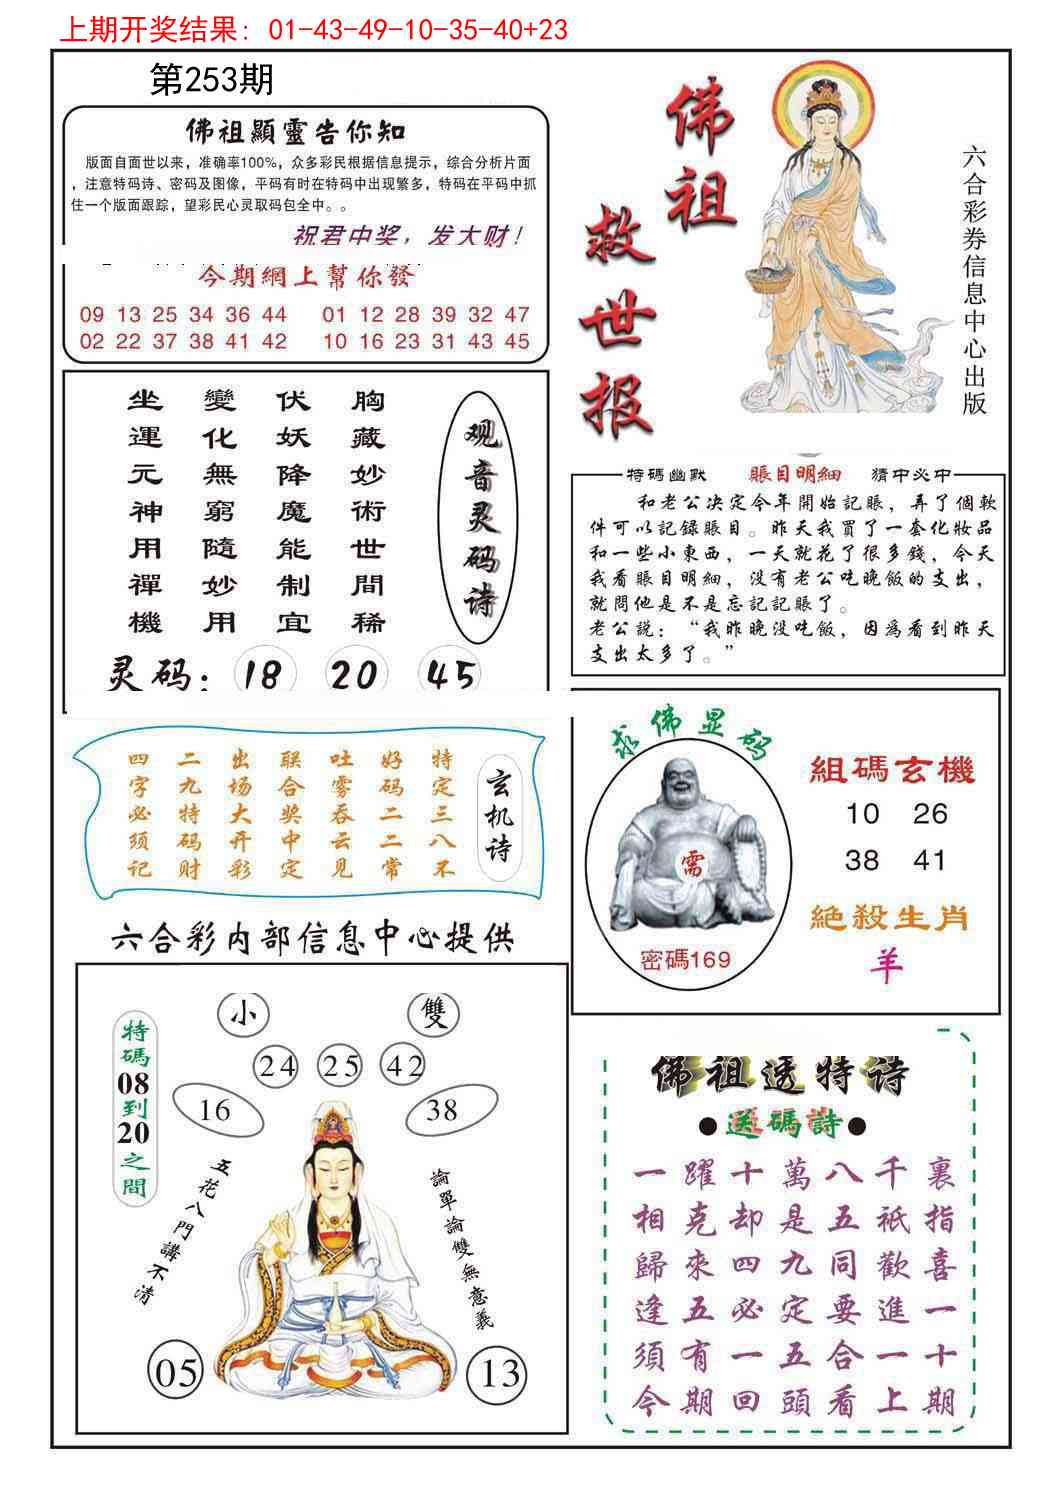 上期开奖结果: 01-43-49-10-35-40+23
第253期
佛祖顯靈告你知
版面自面世以来，准确率100%，众多彩民根据信息提示，综合分析片面
，注意特码诗、密码及图像，平码有时在特码中出现繁多，特码在平码中抓
住一个版面跟踪，望彩民心灵取码包全中。。
祝君中奖，发大财！
今期網上幫你發
09 13 25 34 36 44 01 12 28 39 32 47
02 22 37 38 41 42 10 16 23 31 43 45
佛祖
救世报
六合彩券信息中心出版
胸藏妙術世間稀
伏妖降魔能制宜
變化無窮隨妙用
坐運元神用禪機
观音灵码诗
灵码: 18 20 45
特碼幽默 賬目明細 猜中必中
和老公决定今年開始記賬，弄了個軟
件可以記録賬目。昨天我買了一套化妝品
和一些小東西，一天就花了很多錢，今天
我看賬目明細，没有老公吃晚飯的支出，
就問他是不是忘記記賬了。
老公説：“我昨晚没吃飯，因為看到昨天
支出太多了。”
玄机诗
特定三八不
好码二二常
吐雾吞云见
联合奖中定
出场大开彩
二九特码财
四字必须记
求佛显码
需
密碼169
組碼玄機
10 26
38 41
絶殺生肖
羊
六合彩内部信息中心提供
特碼08到20之間
小
雙
24 25 42
16
38
五花八門講不清
論單論雙無意義
05
13
佛祖透特诗
●送碼詩●
一躍十萬八千裏
相克却是五衹指
歸來四九同歡喜
逢五必定要進一
須有一五合一十
今期回頭看上期